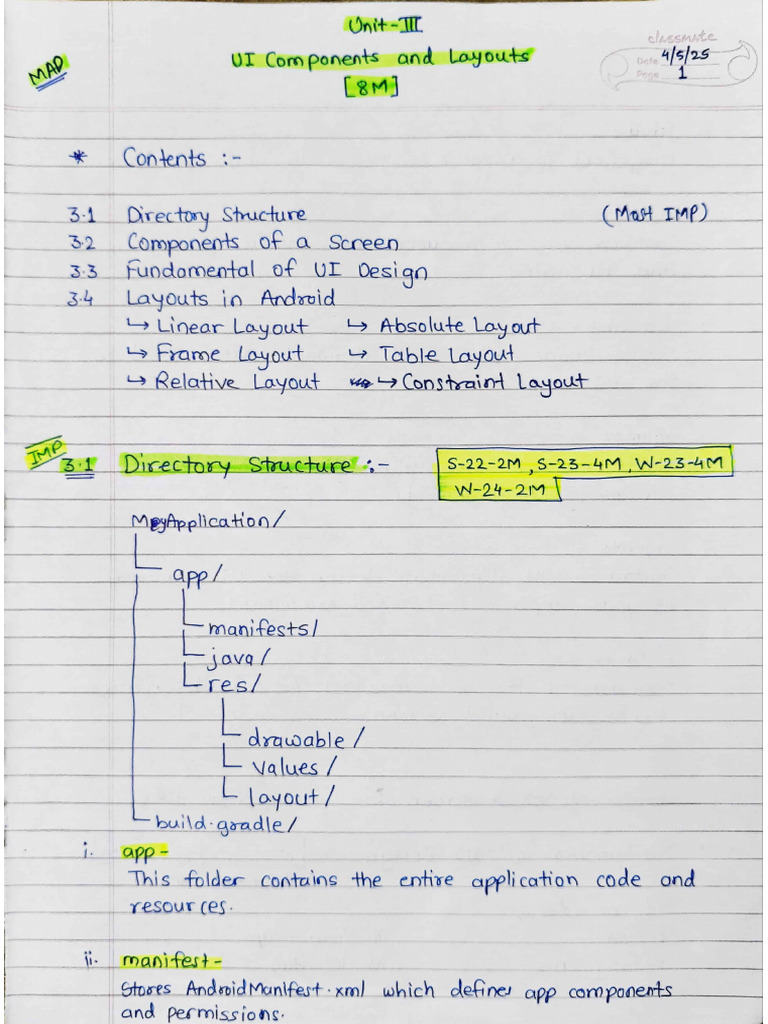 Unit-III
MAD
UI Components and Layouts
[8M]
classmate
Date 4/5/25
Page 1
* Contents :-
3.1 Directory Structure (Most IMP)
3.2 Components of a Screen
3.3 Fundamental of UI Design
3.4 Layouts in Android
↳ Linear Layout ↳ Absolute Layout
↳ Frame Layout ↳ Table Layout
↳ Relative Layout ↳ Constraint Layout
IMP
3.1 Directory Structure :-
S-22-2M, S-23-4M, W-23-4M
W-24-2M
MyApplication/
app/
manifests/
java/
res/
drawable/
values/
layout/
build.gradle/
i. app-
This folder contains the entire application code and
resources.
ii. manifest-
Stores AndroidManifest.xml which defines app components
and permissions.